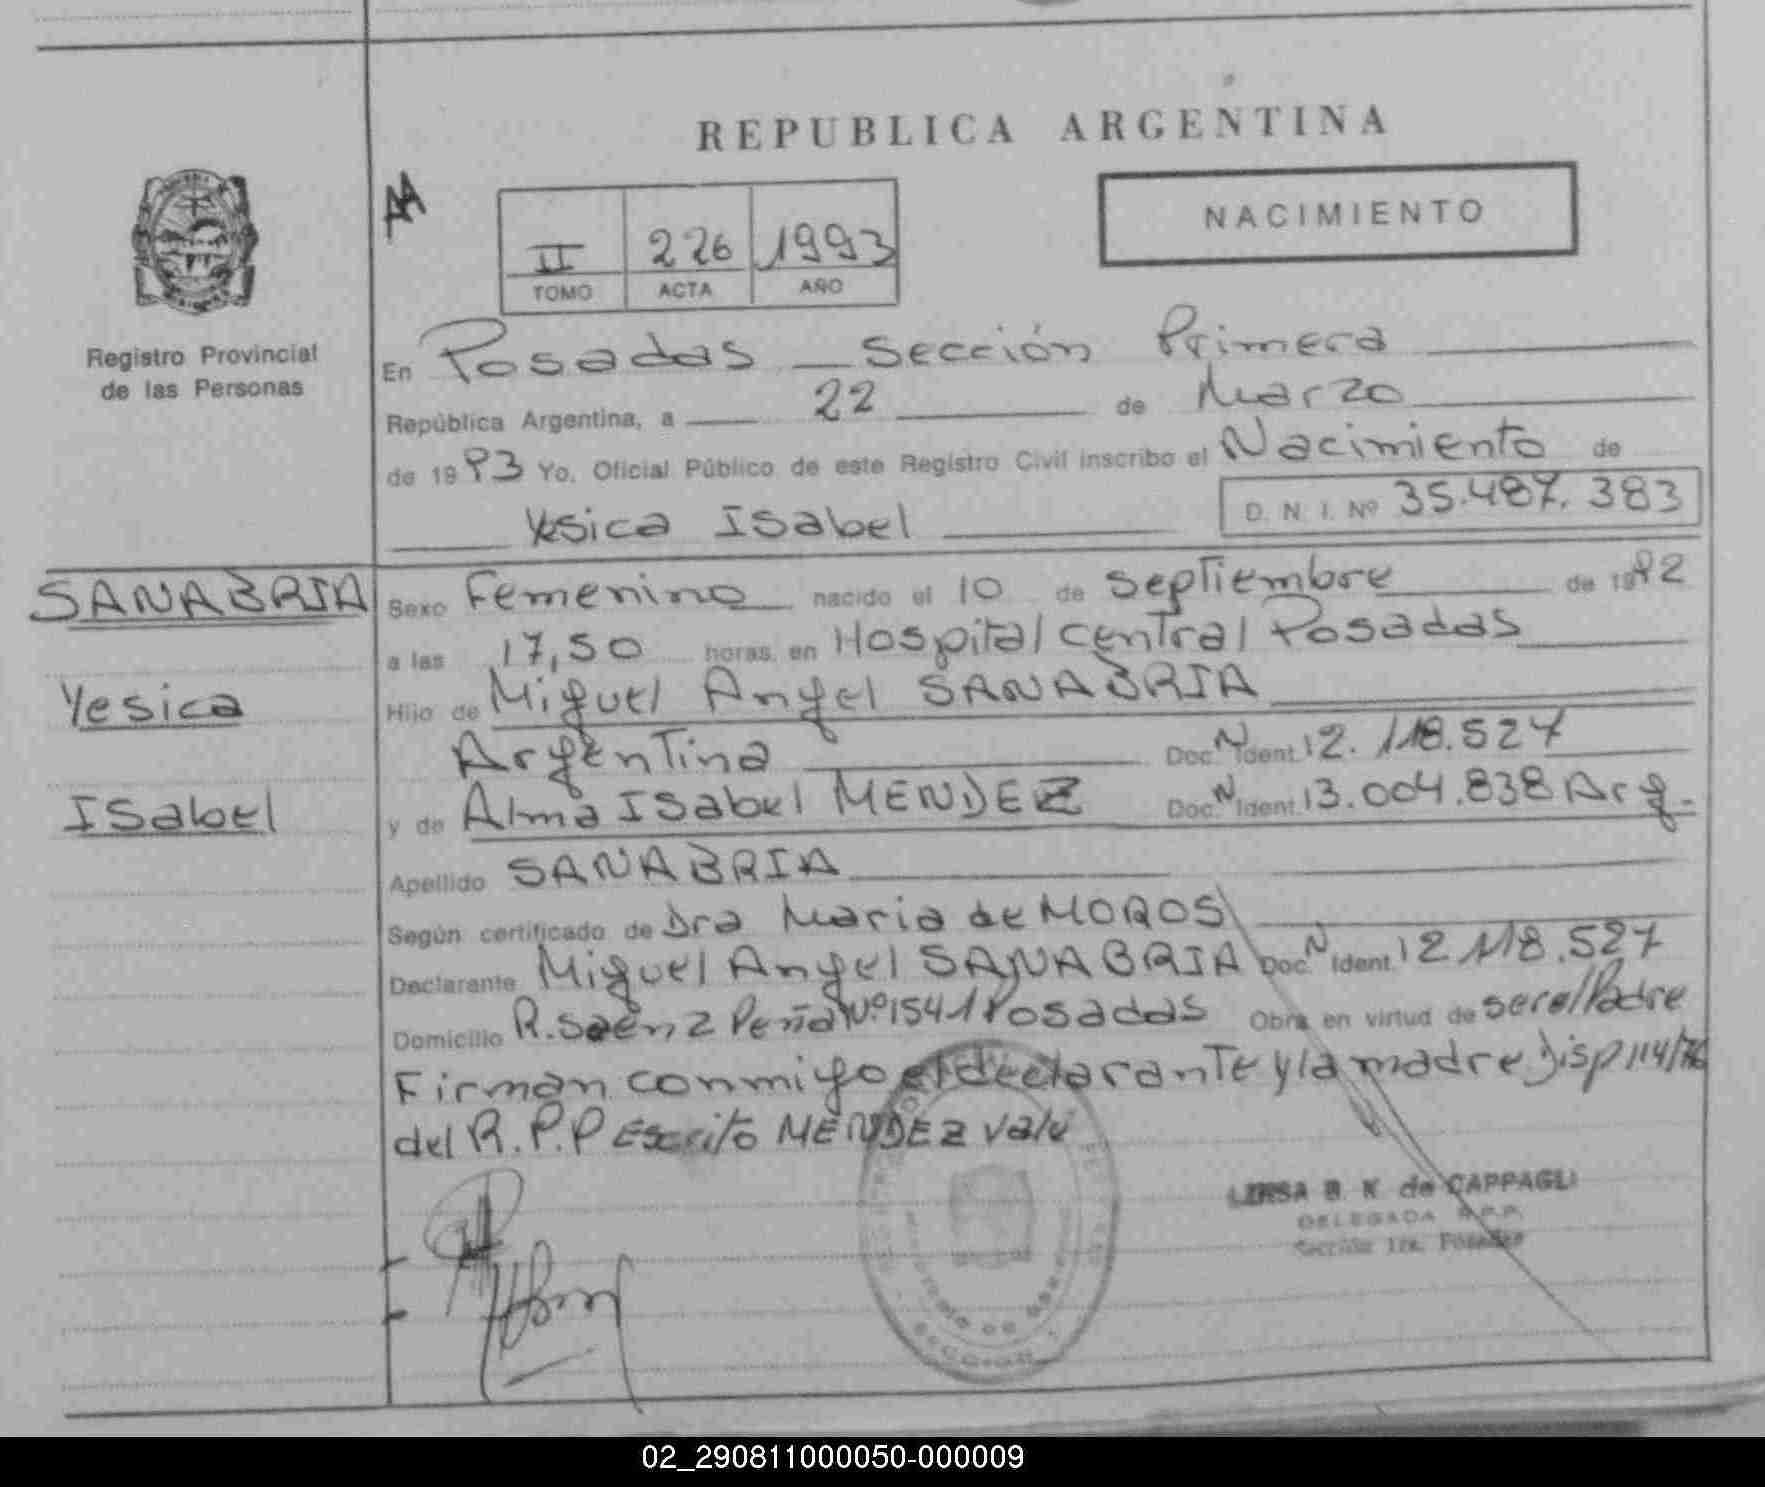 REPUBLICA ARGENTINA
AA
NACIMIENTO
II 226 1993
TOMO ACTA AÑO
Registro Provincial
de las Personas
En Posadas sección Primera
República Argentina, a 22 de Marzo
de 1993 Yo, Oficial Público de este Registro Civil inscribo el Nacimiento de
Yesica Isabel D. N. I. Nº 35.487.383
SANABRIA
Yesica
Isabel
Sexo Femenino nacido el 10 de septiembre de 1992
a las 17,50 horas, en Hospital central Posadas
Hijo de Miguel Angel SANABRIA
Argentina Doc. N Ident. 12.118.527
y de Alma Isabel MENDEZ Doc. N Ident. 13.004.838 Arg.
Apellido SANABRIA
Según certificado de Dra Maria de MOROS
Declarante Miguel Angel SANABRIA Doc. N Ident. 12 118.527
Domicilio R. Saenz Peña Nº 1541 Posadas Obra en virtud de ser el Padre
Firman conmigo el declarante y la madre Disp 114/76
del R.P.P Escrito MENDEZ vale
B. K. de CAPPAGLI
DELEGADA R.P.P.
Sección 1ra. Posadas
02_290811000050-000009